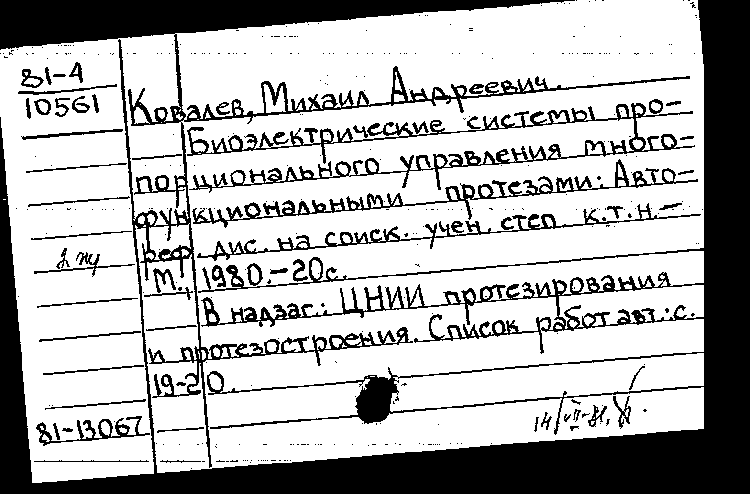 81-4
10561
Ковалев, Михаил Андреевич.
Биоэлектрические системы про-
порционального управления много-
функциональными протезами: Авто-
реф. дис. на соиск. учен. степ к.т.н.-
М., 1980.-20с.
В надзаг.: ЦНИИ протезирования
и протезостроения. Список работ авт.: с.
19-20.
81-13067
14/VII-81.